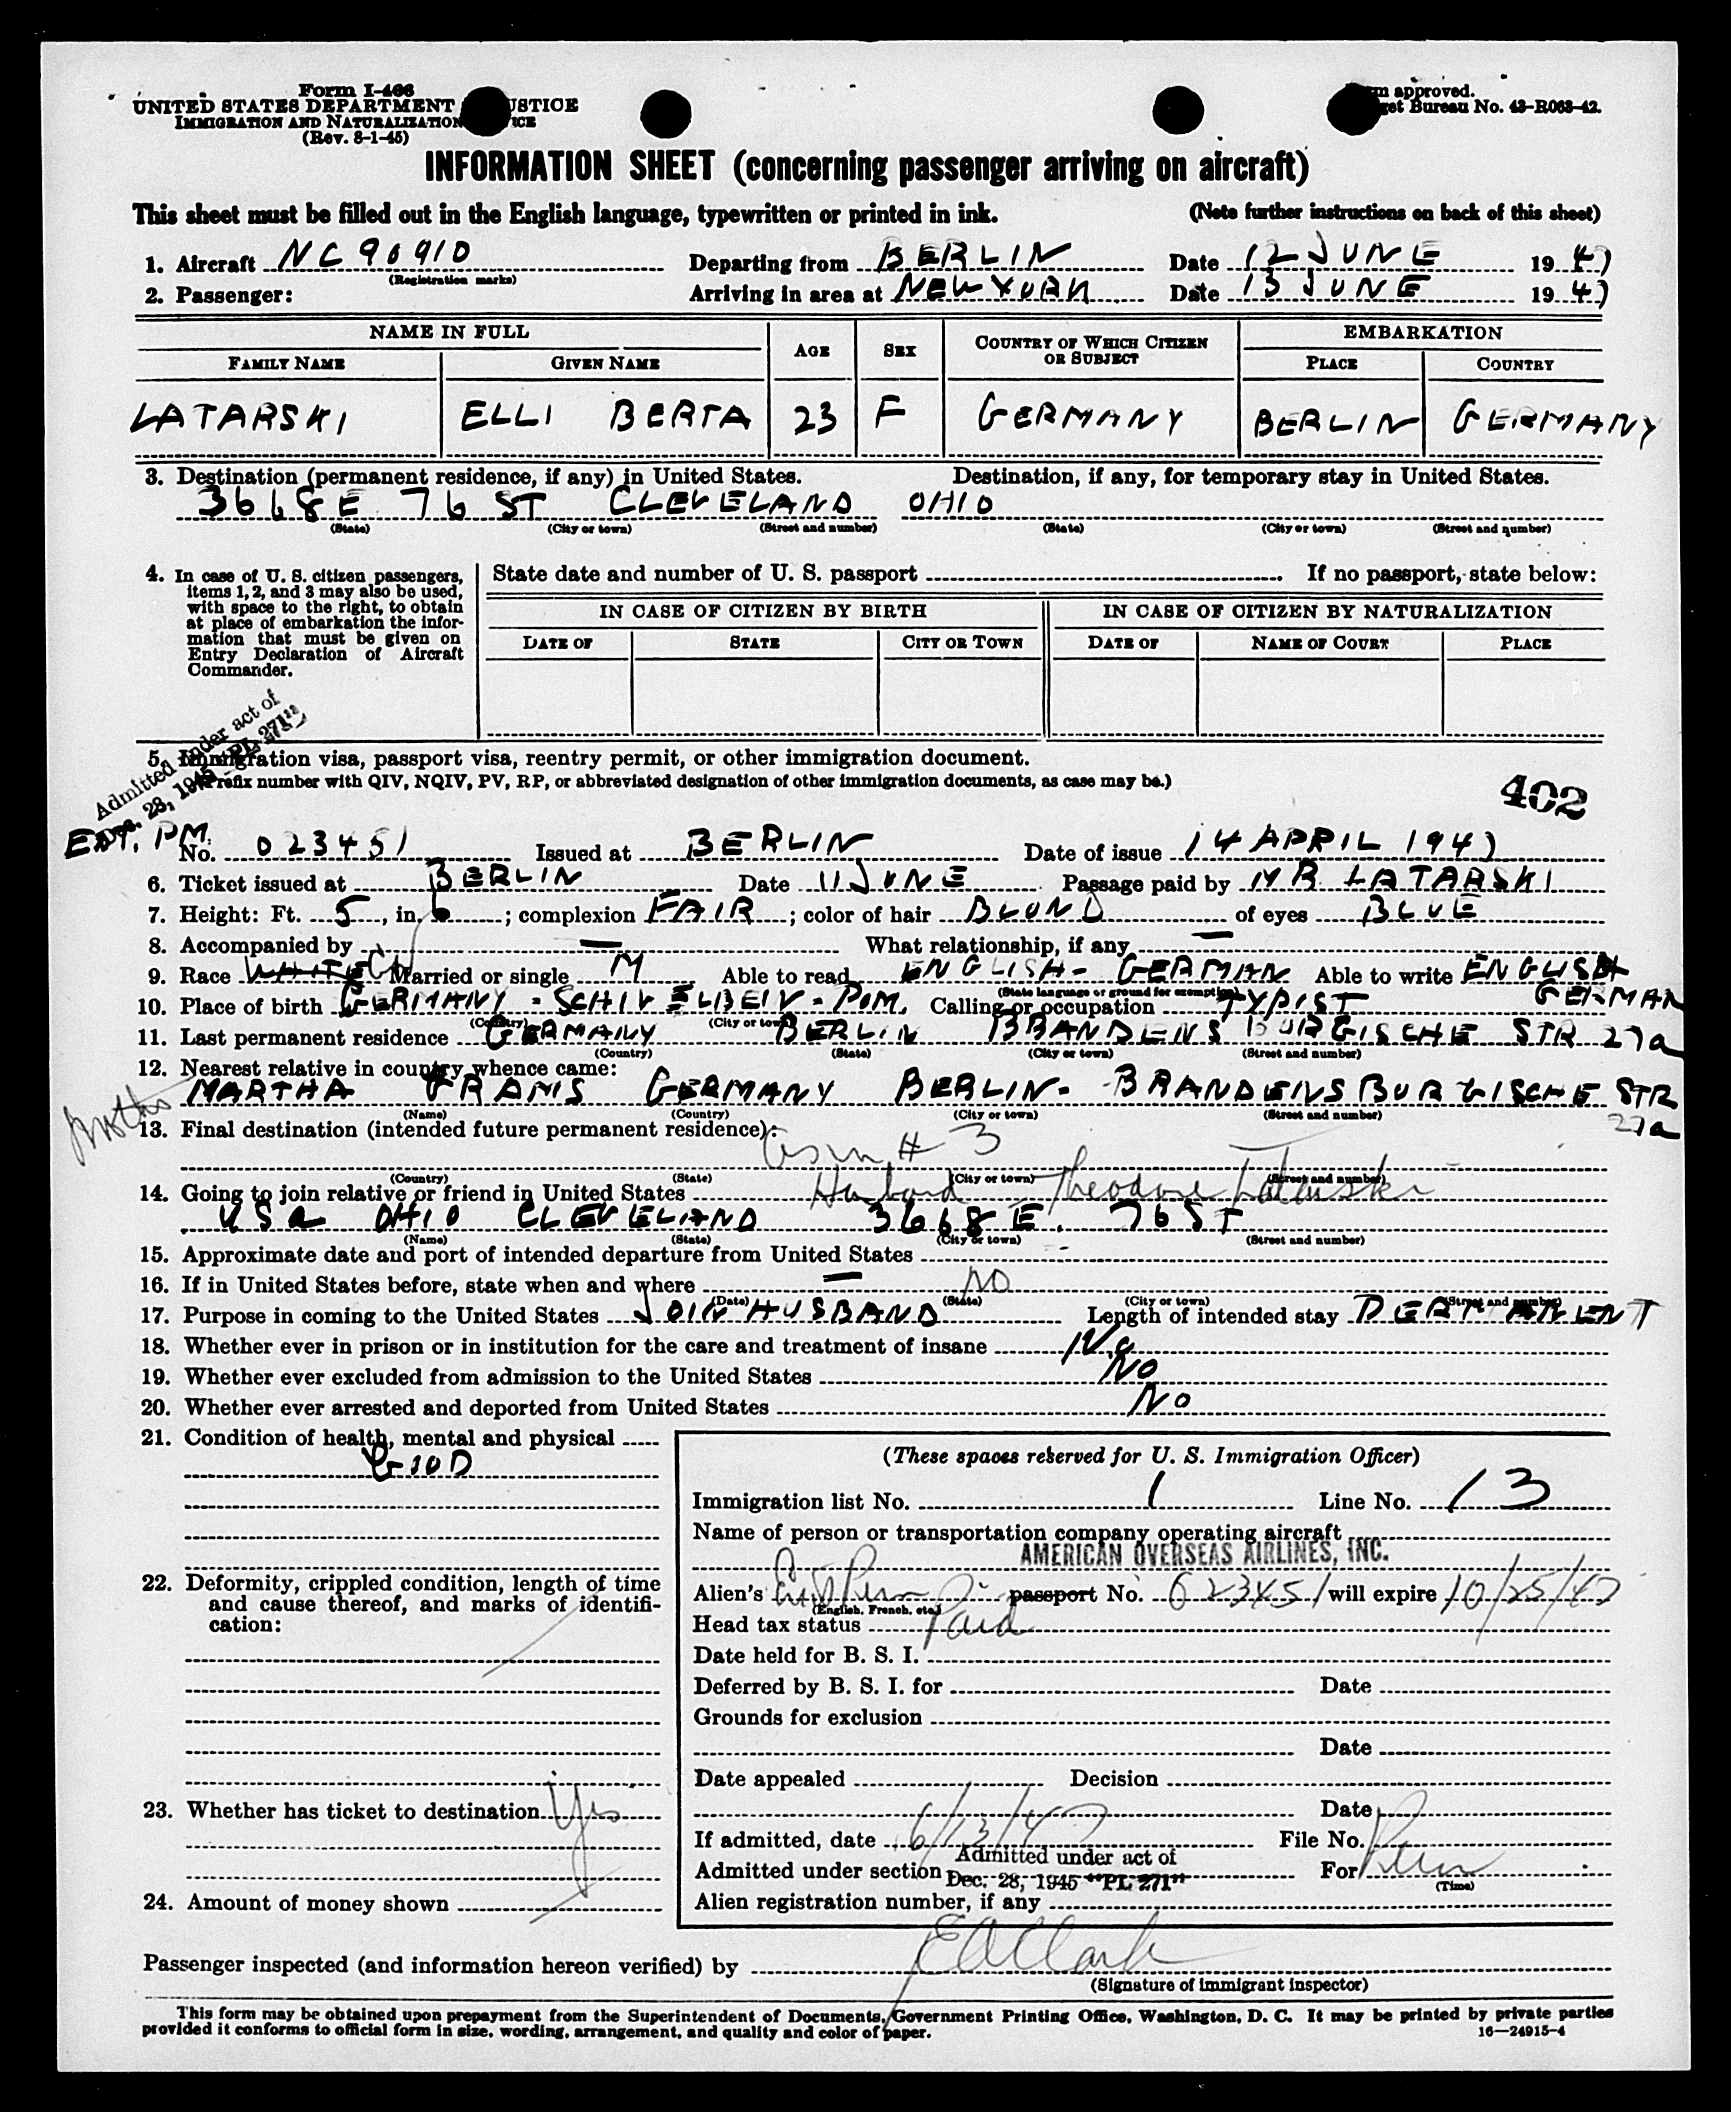 Form I-466
UNITED STATES DEPARTMENT JUSTICE
IMMIGRATION AND NATURALIZATION
(Rev. 8-1-45)
approved.
Bureau No. 43-R063-42.
INFORMATION SHEET (concerning passenger arriving on aircraft)
This sheet must be filled out in the English language, typewritten or printed in ink. (Note further instructions on back of this sheet)
1. Aircraft NC 90910 Departing from BERLIN Date 12 JUNE 1947
(Registration marks)
2. Passenger: Arriving in area at NEW YORK Date 13 JUNE 1947
NAME IN FULL EMBARKATION
FAMILY NAME GIVEN NAME AGE SEX COUNTRY OF WHICH CITIZEN OR SUBJECT PLACE COUNTRY
LATARSKI ELLI BERTA 23 F GERMANY BERLIN GERMANY
3. Destination (permanent residence, if any) in United States. Destination, if any, for temporary stay in United States.
3668 E 76 ST CLEVELAND OHIO
(State) (City or town) (Street and number) (State) (City or town) (Street and number)
4. In case of U. S. citizen passengers, items 1, 2, and 3 may also be used, with space to the right, to obtain at place of embarkation the information that must be given on Entry Declaration of Aircraft Commander.
State date and number of U. S. passport If no passport, state below:
IN CASE OF CITIZEN BY BIRTH IN CASE OF CITIZEN BY NATURALIZATION
DATE OF STATE CITY OR TOWN DATE OF NAME OF COURT PLACE
Admitted under act of
Dec. 28, 1945 "PL 271"
5. Immigration visa, passport visa, reentry permit, or other immigration document.
(Prefix number with QIV, NQIV, PV, RP, or abbreviated designation of other immigration documents, as case may be.)
402
ENT. PM.
No. 023451 Issued at BERLIN Date of issue 14 APRIL 1947
6. Ticket issued at BERLIN Date 11 JUNE Passage paid by MR LATARSKI
7. Height: Ft. 5, in. 6; complexion FAIR; color of hair BLOND of eyes BLUE
8. Accompanied by — What relationship, if any —
9. Race WHITE Married or single M Able to read ENGLISH - GERMAN Able to write ENGLISH GERMAN
(State language or ground for exemption)
10. Place of birth GERMANY - SCHIVELBEIN - POM. Calling or occupation TYPIST
(Country) (City or town)
11. Last permanent residence GERMANY BERLIN BRANDENSBURGISCHE STR 27a
(Country) (State) (City or town) (Street and number)
12. Nearest relative in country whence came:
MARTHA GERMANY BERLIN - BRANDENSBURGISCHE STR 27a
(Name) (Country) (City or town) (Street and number)
13. Final destination (intended future permanent residence):
# 3
(Country) (State) (City or town) (Street and number)
14. Going to join relative or friend in United States Husband Theodore Latarski
USA OHIO CLEVELAND 3668 E. 76 ST
(Name) (State) (City or town) (Street and number)
15. Approximate date and port of intended departure from United States
16. If in United States before, state when and where — NO
(Date) (State) (City or town) (Street and number)
17. Purpose in coming to the United States JOIN HUSBAND Length of intended stay PERMANENT
18. Whether ever in prison or in institution for the care and treatment of insane No
19. Whether ever excluded from admission to the United States NO
20. Whether ever arrested and deported from United States NO
21. Condition of health, mental and physical
GOOD
(These spaces reserved for U. S. Immigration Officer)
Immigration list No. 1 Line No. 13
Name of person or transportation company operating aircraft
AMERICAN OVERSEAS AIRLINES, INC.
22. Deformity, crippled condition, length of time and cause thereof, and marks of identification:
Alien's Exit Perm passport No. 023451 will expire 10/25/47
(English, French, etc.)
Head tax status Paid
Date held for B. S. I.
Deferred by B. S. I. for Date
Grounds for exclusion
Date
Date appealed Decision
23. Whether has ticket to destination yes
Date
If admitted, date 6/13/47 File No.
Admitted under section Admitted under act of
Dec. 28, 1945 "PL 271" For Perm
(Time)
24. Amount of money shown
Alien registration number, if any
Passenger inspected (and information hereon verified) by E A Clark
(Signature of immigrant inspector)
This form may be obtained upon prepayment from the Superintendent of Documents, Government Printing Office, Washington, D. C. It may be printed by private parties
provided it conforms to official form in size, wording, arrangement, and quality and color of paper. 16—24915-4